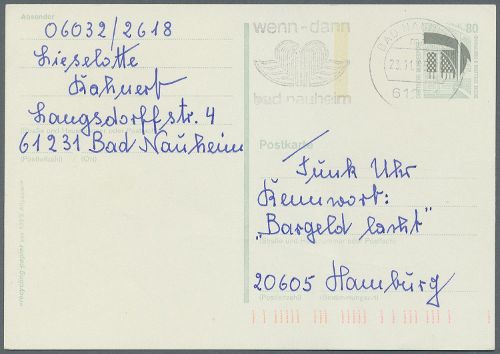 Absender
06032/2618
Lieselotte
Kahnert
Langsdorffstr. 4
61231 Bad Nauheim
(Postleitzahl) (Ort)
wenn-dann
bad nauheim
BAD NAU
23.11
612
80
Postkarte
Funk Uhr
Kennwort:
„Bargeld lacht"
(Straße und Hausnummer oder Postfach)
20605 Hamburg
(Postleitzahl) (Bestimmungsort)